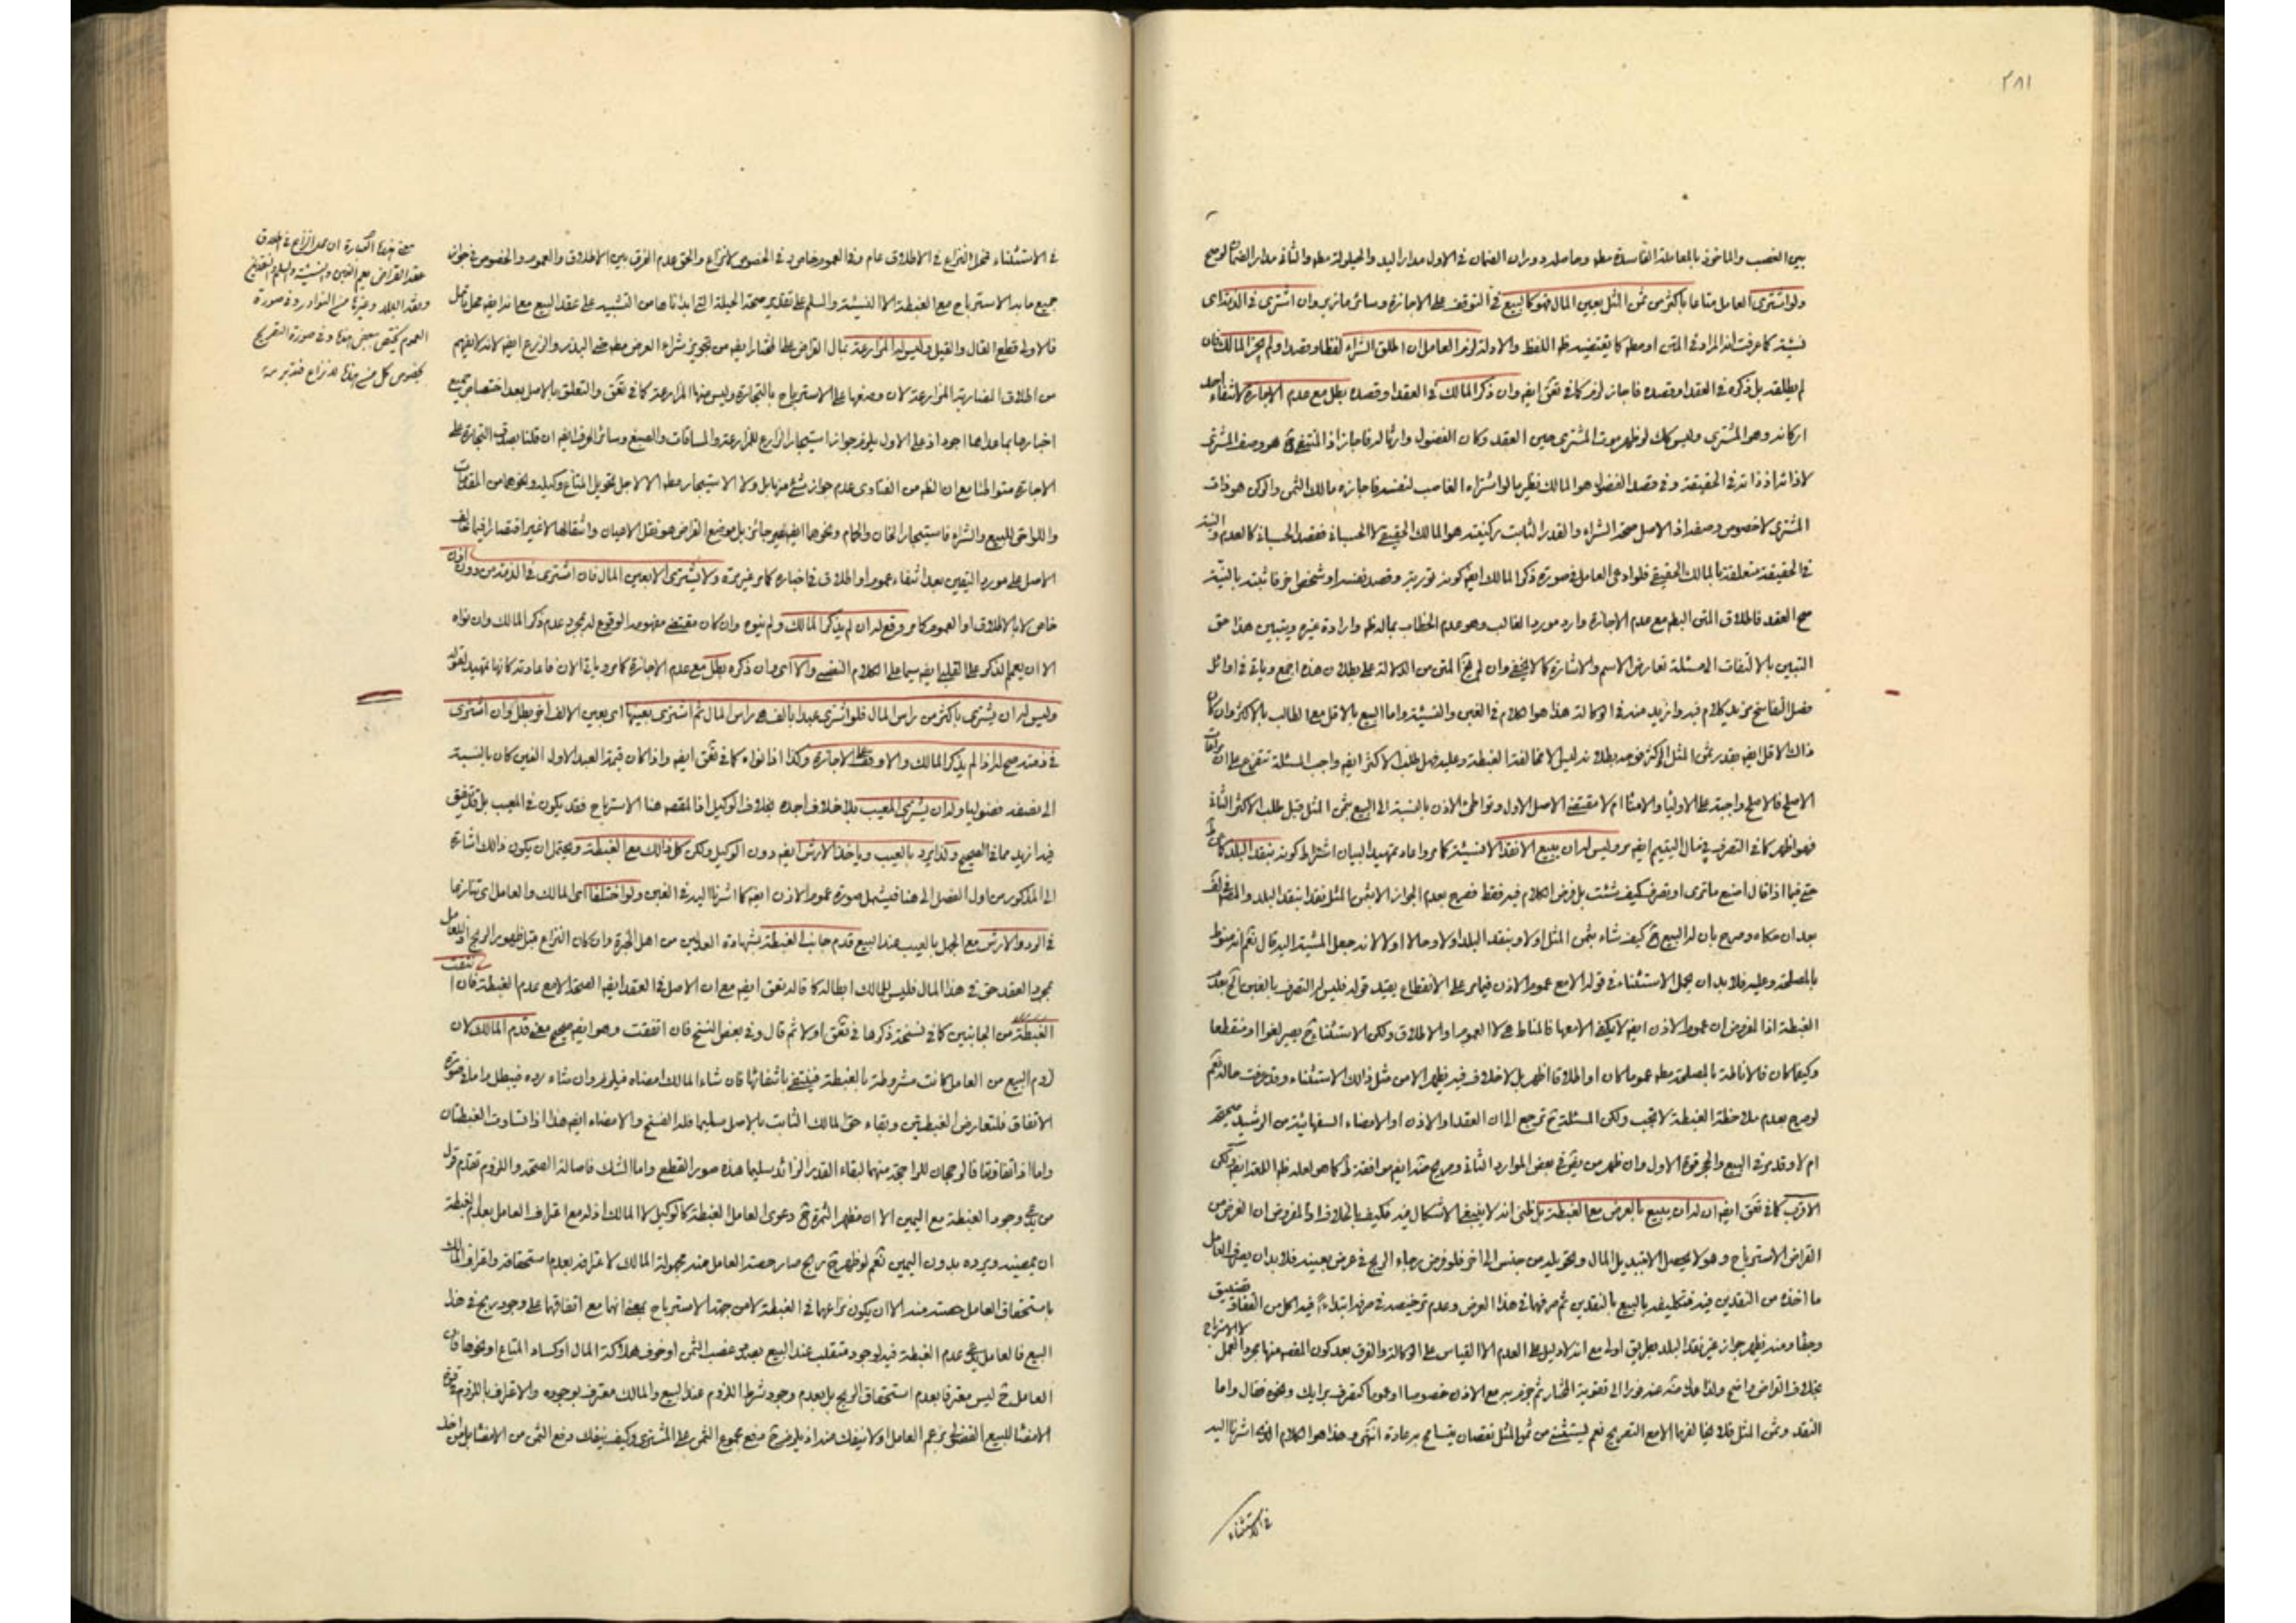 ٢٨١
بين الغصب والماخوذ بالمعاملة الفاسدة مطه وحاصله دوران الضمان في الاول مدار اليد والحيلولة مطه والثاني مدار
ولو اشترى العامل متاعا باكثر من ثمن المثل بعين المال فهو كالبيع في التوقف على الاجازة وسائر مازبر وان اشترى في الذمة اى
نسيئة كما عرفت انه المراد في المتن او مطه كما يقتضيه ظه اللفظ والادلة لزم العامل ان اطلق الشراء لفظا وقصدا ولم يجز المالك فان
لم يطلقه بل ذكره في العقد او قصده فاجاز لزم كما في تعق ايضه وان ذكر المالك في العقد او قصده بطل مع عدم الاجازة لانتفاء احد
اركانه وهو المشترى وليس كك لو ظهر موت المشترى حين العقد وكان الفضولى وارثا له فاجاز اذ المنتفى ح هو وصف المشترى
لا ذاته اذ ذاته في الحقيقة وفي قصد الفضولى هو المالك فظير ما لو اشتراه الغاصب لنفسه فاجازه مالك الثمن والركن هو ذات
المشترى لا خصوص وصفه اذ الاصل صحة الشراء والقدر الثابت ركنيته هو المالك الحقيقى لا الحسبانى فقصد الحسبانى كالعدم والنية
في الحقيقة متعلقة بالمالك الحقيقى فلو ادعى العامل في صورة ذكر المالك ايضه كونه تورية وقصد نفسه او شخص اخر فاثبته بالبينة
صح العقد فاطلاق المتن البطه مع عدم الاجازة وارد مورد الغالب وهو عدم الخطاب بماله ظه وارادة غيره ويتبين هذا حق
التبين بالالتفات الى مسئلة تعارض الاسم والاشارة كما لا يخفى وان لم يخل المتن من الدلالة على بطلان هذه اجمع وياتى في اوائل
فصل التفاسخ مزيد كلام فيه وازيد منه في الوكالة هذا هو الكلام في الغبن والنسيئة واما البيع بالاقل مع الطالب بالاكثر وان كان
ذاك الاقل ايضه بقدر ثمن المثل
الاصلح فالاصلح واجبة على الاولياء والامناء ام لا مقتضى الاصل الاول وتواطئ الاذن بالنسبة الى البيع بثمن المثل قبل طلب الاكثر الثانى
فهو اظهر كما في التصرف في مال اليتيم ايضه مر وليس له ان يبيع الا نقدا لا نسيئة كما مر واعاده تمهيدا لبيان اشتراط كونه بنقد البلد
حتى فيما اذا قال اصنع ما ترى او تصرف كيف شئت بل فرض الكلام فيه فقط فصرح بعدم الجواز الا بثمن المثل نقدا بنقد البلد
بعد ان حكاه وصرح بان له البيع ح كيف شاء بثمن المثل او لا وبنقد البلد او لا وحالا او لا لانه جعل المشيئة اليه قال نعم انه منوط
بالمصلحة وعليه فلا بد ان يحمل الاستثناء في قوله الا مع عموم الاذن فيما مر على الانقطاع بعينه قوله فليس له التصرف بالغبن
الغبطة اذا المفروض ان عموم الاذن ايضه لا يكفى الا معها فالمناط هي لا العموم او الاطلاق ولكن الاستثناء ح يصير لغوا او منقطعا
وكيف كان فالاناطة بالمصلحة مطه عموما كان او اطلاقا اظهر بل لا خلاف فيه فظهر الامر مثل ذلك الاستثناء وقد عرفت حاله نعم
لو صرح بعدم ملاحظة الغبطة لا تجب ولكن المسئلة ح ترجع الى ان العقد او الاذن او الامضاء السفهائية من الرشيد
ام لا وقد مر في البيع والحجر قوة الاول وان ظهر من تعق في بعض الموارد الثانى
الاقرب كما في تعق ايضه ان له ان يبيع بالعرض مع الغبطة بل ظنى انه لا ينبغى الاشكال فيه فكيف بالخلاف اذ المفروض ان الغرض من
القراض الاسترباح وهو لا يحصل الا بتبديل المال وتحويله من جنس الى اخر فلو فرض رجاء الربح في عرض بعينه فلا بد ان يصرف العامل
ما اخذه من النقدين فيه فتكليفه بالبيع بالنقدين ثم صرفهما في هذا العرض وعدم ترخيصه في صرفه ابتداء فيه اكل من القفا وتضييق
وجفا ومنه يظهر جواز غير نقد البلد بطريق اولى مع انه لا دليل على العدم الا القياس على الوكالة والفرق بعد كون المقصه منها مجرد العمل لا الاسترباح
بخلاف القراض واضح ولذا عاد منه عنه فورا الى تقوية المختار ثم جوزه مع الاذن خصوصا او عوما كتصرف برايك ونحوه فقال واما
النقد وثمن المثل فلا يخالفهما الا مع التصريح نعم يستثنى من ثمن المثل نقصان يتسامح به عادة انتهى وهذا هو الكلام الذى اشرنا اليه
في الاستثناء
في الاستثناء فمحل النزاع في الاطلاق عام وفي العموم خاص وفي الخصوص لا نزاع والحق عدم الفرق بين الاطلاق والعموم والخصوص في جواز
جميع ما به الاسترباح مع الغبطة الا النسيئة والسلم على تقدير صحة الحيلة التى ابدأناها من التشبيه على عقد البيع مع انه ايضه محل تامل
فالاولى قطع القال والقيل وليس له المزارعة بمال القراض على المختار ايضه من تجويز شراء العرض مطه حتى البذر والزرع ايضه لانه لا يفهم
من اطلاق المضاربة المزارعة لان وضعها على الاسترباح بالتجارة وليس منها المزارعة كما في تعق والتعلق بالاصل بعد اختصاص جميع
اخبارها بما عداها اجود اذ على الاول يلزم جواز استيجار الزارع للزارعة والمساقات والصبغ وسائر الحرف ايضه ان قلنا بصدق التجارة على
الاجارة متواطئا مع ان الظه من الفتاوى عدم جواز شئ مزبابل ولا الاستيجار مطه الا لاجل تحويل المتاع وكيله ونحوهما من المقدمات
واللواحق للبيع والشراء فاستيجار الخان والحمام ونحوهما ايضه غير جائز بل موضع القراض هو نقل الاعيان وانتقالها لا غير اقتصارا فيما خالف
الاصل على مورد اليقين بعد انتفاء عموم او اطلاق في اخباره كما مر غير مرة ولا يشترى الا بعين المال فان اشترى في الذمة من دون اذن
خاص لا بالاطلاق او العموم كما مر وقع له ان لم يذكر المالك ولم ينوه وان كان مقتضى مفهومه الوقوع له بمجرد عدم ذكر المالك وان نواه
الا ان يعم الذكر على القلبى ايضه سيما على الكلام النفسى والا اى وان ذكره بطل مع عدم الاجازة كما مر وياتى الان فاعادته كانها تمهيد لقوله
وليس له ان يشترى باكثر من راس المال فلو اشترى عبدا بالف هى راس المال ثم اشترى بعينها اى بعين الالف اخر بطل وان اشترى
في ذمته صح له اذا لم يذكر المالك والا وقف على الاجازة وكذا اذا نواه كما في تعق ايضه واذا كان قيمة العبد الاول الفين كان بالنسبة
الى نصفه فضوليا وله ان يشترى المعيب بلا خلاف اجده بخلاف الوكيل اذ المقصه هنا الاسترباح فقد يكون في المعيب بل قد يتفق
فيه ازيد مما في الصحيح وكذا يرد بالعيب وياخذ الارش ايضه دون الوكيل ولكن كل ذلك مع الغبطة ويحتمل ان يكون ذلك اشارة
الى المذكور من اول الفصل الى هنا فيشمل صورة عموم الاذن ايضه كما اشرنا اليه في الغبن ولو اختلفا اى المالك والعامل اى تنازعا
في الرد والارش مع الجهل بالعيب عند البيع قدم جانب الغبطة بشهادة العدلين من اهل الخبرة وان كان النزاع قبل ظهور الربح اذ للعامل
بمجرد العقد حق في هذا المال فليس للمالك ابطاله كما قاله تعق ايضه مع ان الاصل في العقد ايضه الصحة الا مع عدم الغبطة فان انتفت
الغبطة من الجانبين كما في نسخة ذكرها في تعق اولا ثم قال وفي بعض النسخ فان اتفقت وهو ايضه صحيح معنى قدم المالك لان
لزوم البيع من العامل كانت مشروطة بالغبطة فينتفى بانتفائها فان شاء المالك امضاه فيلزم وان شاء رده فيبطل واما في صورة
الاتفاق فلتعارض الغبطتين وبقاء حق المالك الثابت بالاصل سليما فله الفسخ والامضاء ايضه هذا اذا تساوت الغبطتان
واما اذ اتفاوتتا فالرجحان للراجحة منهما لبقاء القدر الزائد سليما هذه صور القطع واما الشك فاصالة الصحة واللزوم تقدم قول
من يدعى وجود الغبطة مع اليمين الا ان مظهر الثمرة ح دعوى العامل الغبطة كالوكيل لا المالك اذ له مع اعتراف العامل بعدم الغبطة
ان يمضيه ويرده بدون اليمين نعم لو ظهر ح ربح صار حصة العامل منه مجهولة المالك لاعترافه بعدم استحقاقه واعتراف المالك
باستحقاق العامل حصته منه الا ان يكون نزاعهما في الغبطة لا من جهة الاسترباح بمعنى انهما مع اتفاقهما على وجود ربح في هذا
البيع فالعامل يدعى عدم الغبطة فيه لوجود متقلب عند البيع بصدد غصب الثمن او خوف هلاكة المال او كساد المتاع او نحوها فان
العامل ح ليس معترفا بعدم استحقاق الربح بل بعدم وجود شرط اللزوم عند البيع والمالك معترف بوجوده والاعتراف باللزوم
الامضاء للبيع الفضولى بزعم العامل او لا ينفك عنه اذ يلزمه ح دفع مجموع الثمن على المشترى وكيف ينفك دفع الثمن من الامضاء بل من اخذ
عقد القراض يعم الغبن والنسيئة والسلم
ونقد البلد وغيرها من النوادر وفي صورة
العموم يختص ببعض هذه وفي صورة التصريح
بخصوص كل من هذه لا نزاع فتدبر منه